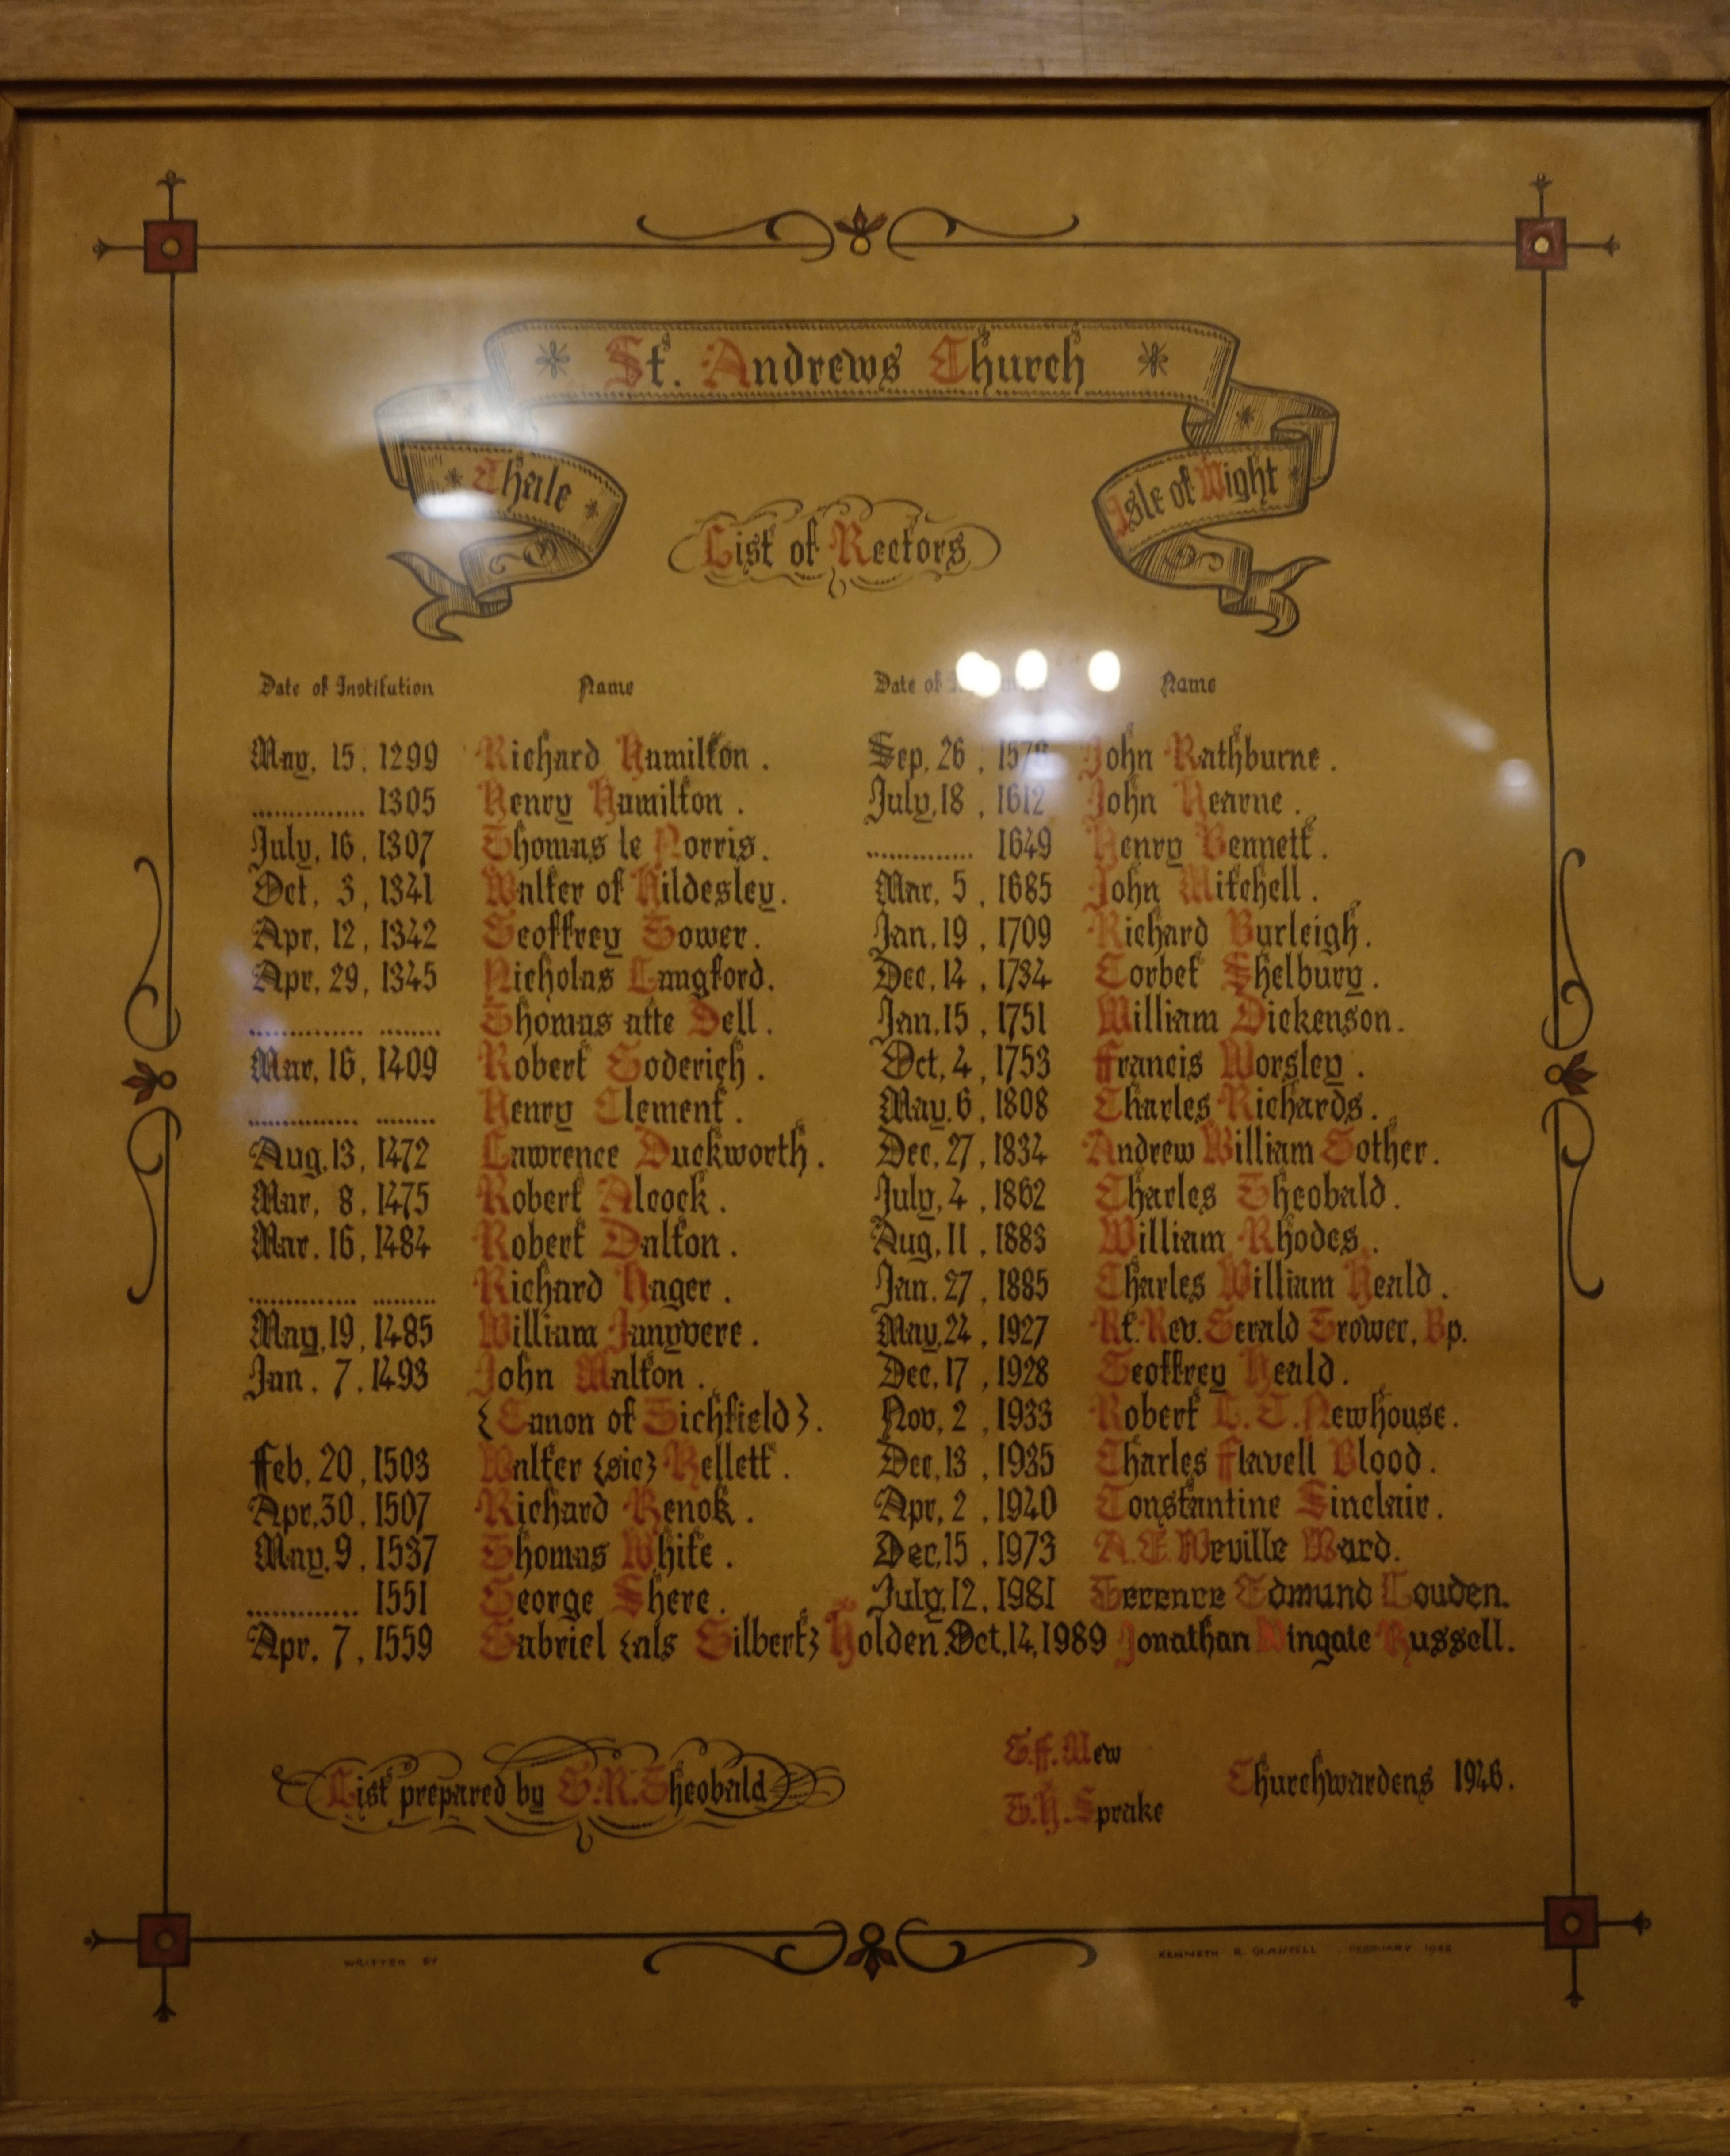 St. Andrews Church
Chale
Isle of Wight
List of Rectors
Date of Institution Name
May, 15, 1299 Richard Hamilton.
.............. 1305 Henry Hamilton.
July, 16, 1307 Thomas le Norris.
Oct, 3, 1341 Walter of Hildesley.
Apr, 12, 1342 Geoffrey Gower.
Apr, 29, 1345 Nicholas Langford.
.............. ........ Thomas atte Dell.
Mar, 16, 1409 Robert Goderich.
.............. ........ Henry Clement.
Aug, 13, 1472 Lawrence Duckworth.
Mar, 8, 1475 Robert Alcock.
Mar. 16, 1484 Robert Dalton.
.............. ........ Richard Hager.
May, 19, 1485 William Janyvere.
Jan, 7, 1493 John Walton.
{Canon of Tichfield}.
Feb, 20, 1503 Walter {sic} Kellett.
Apr, 30, 1507 Richard Kenok.
May, 9, 1537 Thomas White.
.............. 1551 George Shere.
Apr, 7, 1559 Gabriel {als Gilbert} Holden.
Date of Name
Sep, 26, John Rathburne.
July, 18, 1612 John Hearne.
.............. 1649 Henry Bennett.
Mar, 5, 1685 John Mitchell.
Jan, 19, 1709 Richard Burleigh.
Dec, 14, 1734 Corbet Shelbury.
Jan, 15, 1751 William Dickenson.
Oct, 4, 1753 Francis Worsley.
May, 6, 1808 Charles Richards.
Dec, 27, 1834 Andrew William Gother.
July, 4, 1862 Charles Theobald.
Aug, 11, 1883 William Rhodes.
Jan, 27, 1885 Charles William Heald.
May, 24, 1927 Rt. Rev. Gerald Trower, Bp.
Dec, 17, 1928 Geoffrey Heald.
Nov, 2, 1933 Robert L. T. Newhouse.
Dec, 13, 1935 Charles Flavell Blood.
Apr, 2, 1940 Constantine Sinclair.
Dec, 15, 1973 A. E. Neville Ward.
July, 12, 1981 Terence Edmund Louden.
Oct, 14, 1989 Jonathan Wingate Russell.
List prepared by Theobald
Mew
Sprake
Churchwardens 1946.
WRITTEN BY
KENNETH R. FEBRUARY